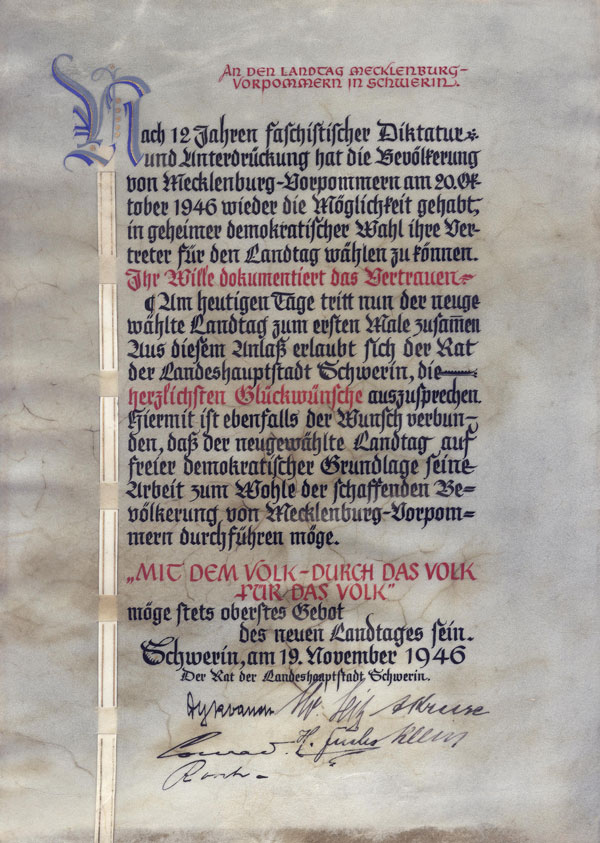 An den Landtag Mecklenburg-
Vorpommern in Schwerin.
Nach 12 Jahren faschistischer Diktatur
und Unterdrückung hat die Bevölkerung
von Mecklenburg-Vorpommern am 20. Ok-
tober 1946 wieder die Möglichkeit gehabt,
in geheimer demokratischer Wahl ihre Ver-
treter für den Landtag wählen zu können.
Ihr Wille dokumentiert das Vertrauen
¶ Am heutigen Tage tritt nun der neuge
wählte Landtag zum ersten Male zusam̄en
Aus diesem Anlaß erlaubt sich der Rat
der Landeshauptstadt Schwerin, die
herzlichsten Glückwünsche auszusprechen.
Hiermit ist ebenfalls der Wunsch verbun-
den, daß der neugewählte Landtag auf
freier demokratischer Grundlage seine
Arbeit zum Wohle der schaffenden Be=
völkerung von Mecklenburg-Vorpom=
mern durchführen möge.
„MIT DEM VOLK - DURCH DAS VOLK
FÜR DAS VOLK"
möge stets oberstes Gebot
des neuen Landtages sein.
Schwerin, am 19. November 1946
Der Rat der Landeshauptstadt Schwerin.
Conrad H. Fuchs